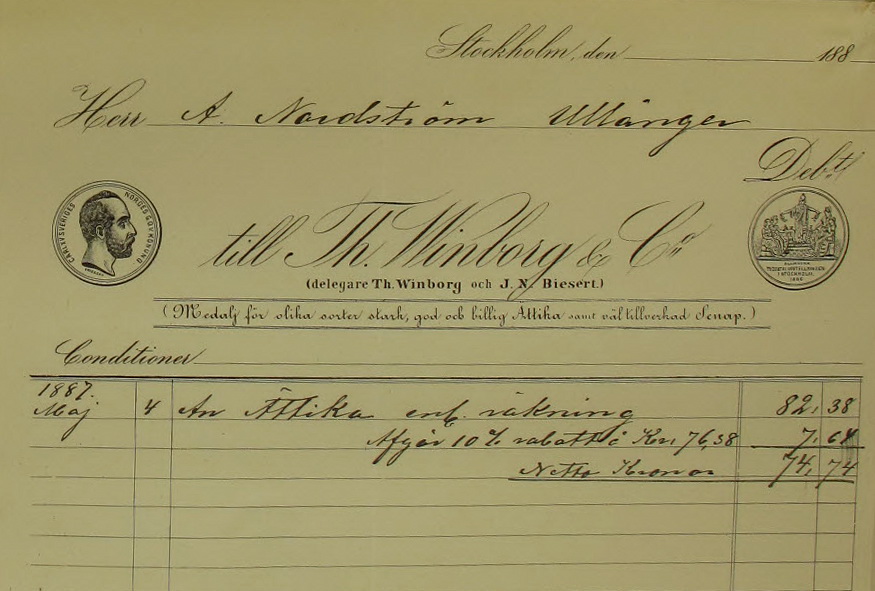 Stockholm, den 188
Herr A. Nordström Ullånger
Debet
CARL XV SVERIGES NORGES GÖT. KONUNG
till Th. Winborg & Co
(delegare Th. Winborg och J. N. Biesert.)
(Medalj för olika sorter stark, god och billig Ättika samt väl tillverkad Senap.)
Conditioner
1887.
Maj 4 An Ättika enl. räkning 82,38
Afgår 10 % rabatt å Kr. 76,38 7,64
Netto Kronor 74,74